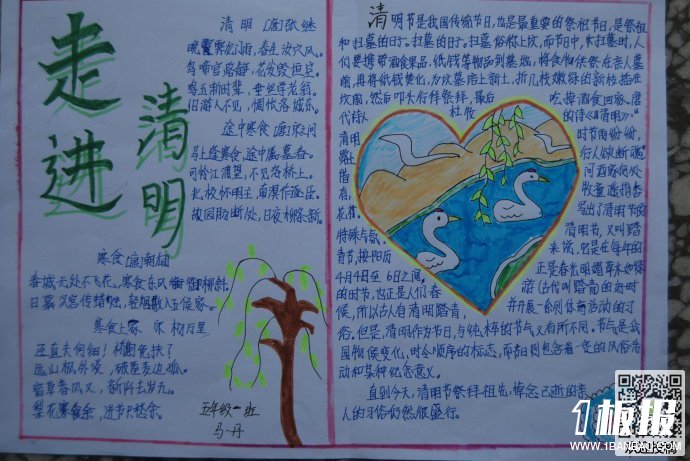 走进
清明
清 明 [唐]张继
耿耿寒龙门雨，春生汝穴风。
鸟啼官路静，花发毁垣空。
鸣玉惭时辈，垂丝学老翁。
旧游人不见，惆怅洛城东。
途中寒食 [唐]宋之问
马上逢寒食，途中属暮春。
可怜江浦望，不见洛桥人。
北极怀明主，南溟作逐臣。
故园肠断处，日夜柳条新。
寒食 [唐]韩翃
春城无处不飞花，寒食东风御柳斜。
日暮汉宫传蜡烛，轻烟散入五侯家。
寒食上冢 宋 杨万里
径直夫何细！桥危可免扶？
远山枫外淡，破屋麦边孤。
宿草春风又，新阡去岁无。
梨花寒食余，进节只愁余。
五年级一班
马一丹
清明节是我国传统节日，也是最重要的祭祖节日，是祭祖
和扫墓的日子。扫墓的日子。扫墓俗称上坟，而节日中，来扫墓时，人
们要携带酒食果品，纸钱等物品到墓地，将食物供祭在亲人墓
前，再将纸钱焚化，为坟墓培上新土，折几枝嫩绿的新枝插在
坟前，然后叩头行拜祭拜，最后 吃掉酒食回家，唐
代诗人 杜牧 的诗《清明》："
清明 时节雨纷纷，
路上 行人欲断魂。
借 问酒家何处
有， 牧童遥指杏
花村。" 写出了清明节的
特殊气氛。 清明节，又叫踏
青节，按阳历 来说，它是在每年的
4月4日至6日之间， 正是春光明媚草木吐绿
的时节，也正是人们春 游（古代叫踏青）的好时
候，所以古人有清明踏青， 并开展一系列体育活动的习
俗。但是，清明作为节日，与纯粹的节气又有所不同。节气是我
国物候变化，时令顺序的标志，而节日则包含着一定的风俗活
动和某种纪念意义。
直到今天，清明节祭拜祖先，悼念已逝的亲
人的习俗仍然很盛行。
1板报
WWW.1BANBAO.COM